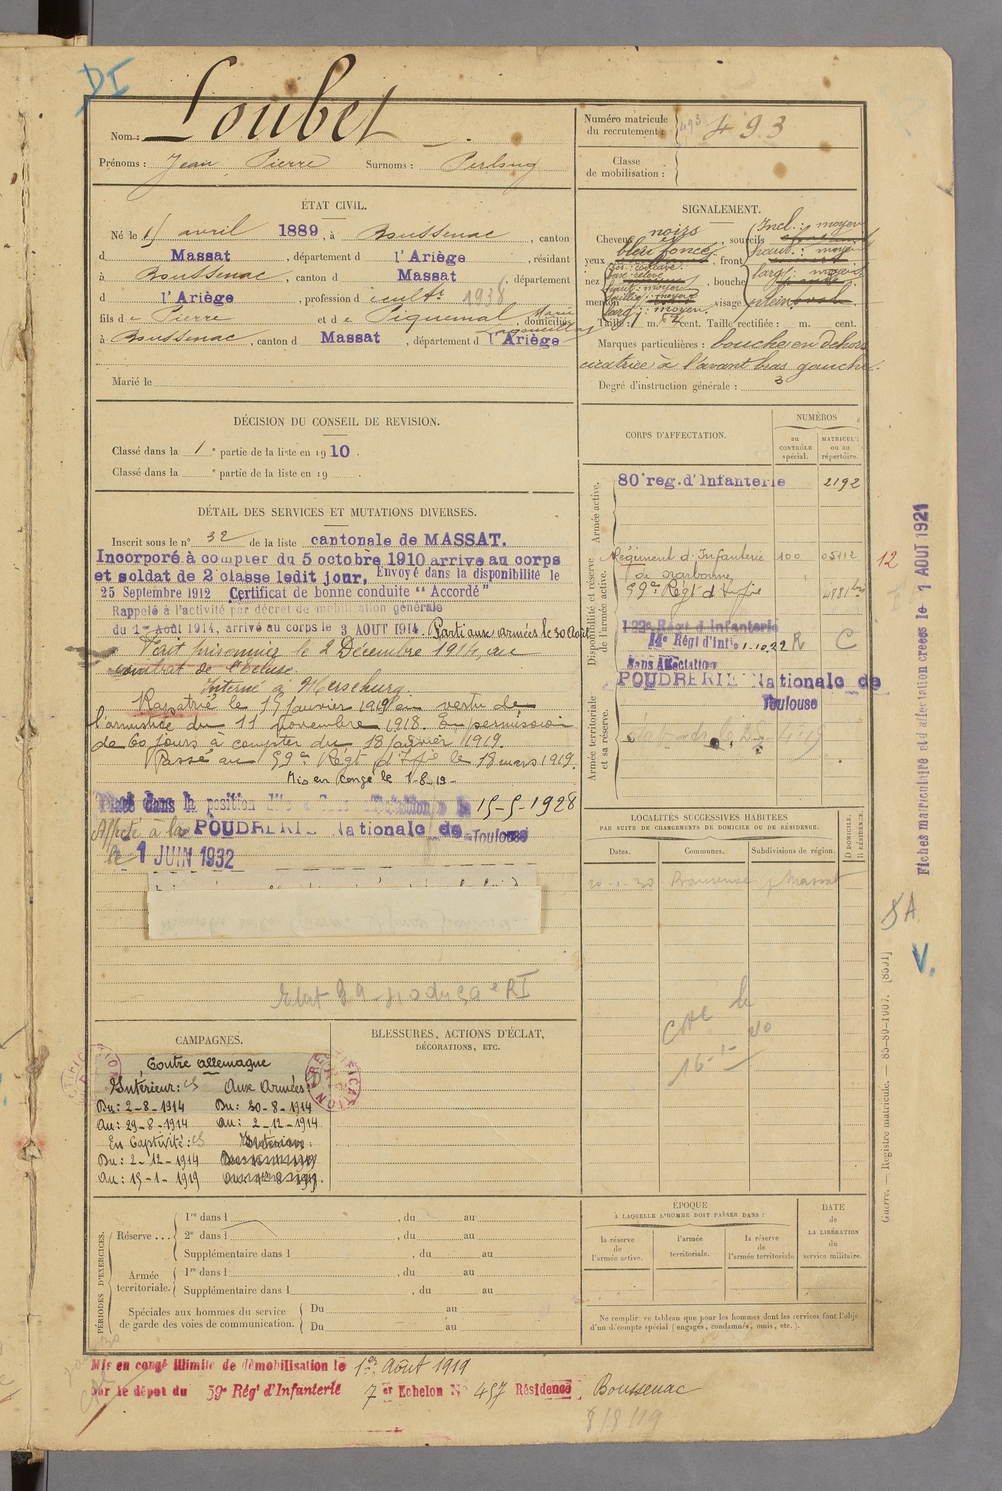 DI
Nom : Loubet
Prénoms : Jean Pierre Surnoms :
Numéro matricule du recrutement : 493
Classe de mobilisation :
ÉTAT CIVIL.
Né le 15 avril 1889, à Boussenac, canton
d Massat, département d l'Ariège, résidant
à Boussenac, canton d Massat, département
d l'Ariège, profession d cultr 1938
fils de Pierre et de Piquemal Marie, domiciliés
à Boussenac, canton d Massat, département d l'Ariège
Marié le
SIGNALEMENT.
Cheveux noirs, sourcils
yeux bleu foncés, front Incl. : moyen haut. : moy. larg. : moyen
nez dos : concave base relevé haut : moyen saillie : moyen larg : moyen, bouche
menton visage plein
Taille : 1 m. cent. Taille rectifiée : m. cent.
Marques particulières : bouche en dehors
cicatrice à l'avant bras gauche.
Degré d'instruction générale : 3
DÉCISION DU CONSEIL DE REVISION.
Classé dans la 1e partie de la liste en 1910.
Classé dans la e partie de la liste en 19
DÉTAIL DES SERVICES ET MUTATIONS DIVERSES.
Inscrit sous le n° 32 de la liste cantonale de MASSAT.
Incorporé à compter du 5 octobre 1910 arrive au corps
et soldat de 2e classe ledit jour. Envoyé dans la disponibilité le
25 Septembre 1912 Certificat de bonne conduite "Accordé"
Rappelé à l'activité par décret de mobilisation générale
du 1er Août 1914, arrivé au corps le 3 AOUT 1914. Parti aux armées le 30 Août
Fait prisonnier le 2 Décembre 1914, au
combat de l'Ecluse
Interné à Merseburg.
Rapatrié le 15 janvier 1919 en vertu de
l'armistice du 11 novembre 1918. En permission
de 60 jours à compter du 18 janvier 1919.
Passé au 59e Régt d'Infie le 18 mars 1919.
Mis en Congé le 1-8-19-
Placé dans la position dite sans affectation le 15-5-1928
Affecté à la POUDRERIE Nationale de Toulouse
le 1 JUIN 1932
CORPS D'AFFECTATION.
NUMÉROS
au CONTRÔLE spécial.
MATRICULE ou au répertoire.
Armée active.
80e reg. d'Infanterie 2192
Disponibilité et réserve de l'armée active.
Régiment d'Infanterie 100 05112
de Narbonne
59e Régt d'Infie
122e Régt d'Infanterie
14e Régt d'Infie 1.10.22 R C
Sans Affectation
Armée territoriale et sa réserve.
POUDRERIE Nationale de
Toulouse
12
Fiches matriculaire et d'affectation créées le 1 AOUT 1921
LOCALITÉS SUCCESSIVES HABITÉES
PAR SUITE DE CHANGEMENTS DE DOMICILE OU DE RÉSIDENCE.
Dates. Communes. Subdivisions de région. D DOMICILE. R RÉSIDENCE.
20.1.30 Boussenac Massat
16-1-
SA
V.
Guerre. — Registre matricule. — 83-89-1907. [8591]
CAMPAGNES.
Contre allemagne
Intérieur : CS Aux Armées :
Du : 2-8-1914 Du : 30-8-1914
Au : 29-8-1914 Au : 2-12-1914
En Captivité : CS Intérieur :
Du : 2-12-1914
Au : 15-1-1919
BLESSURES, ACTIONS D'ÉCLAT,
DÉCORATIONS, ETC.
PÉRIODES D'EXERCICES.
Réserve ... 1re dans l , du au
2e dans l , du au
Supplémentaire dans l , du au
Armée territoriale. 1re dans l , du au
Supplémentaire dans l , du au
Spéciales aux hommes du service
de garde des voies de communication. Du au
Du au
ÉPOQUE
À LAQUELLE L'HOMME DOIT PASSER DANS :
la réserve de l'armée active.
l'armée territoriale.
la réserve de l'armée territoriale
DATE de LA LIBÉRATION du service militaire.
Ne remplir ce tableau que pour les hommes dont les services font l'objet
d'un décompte spécial (engagés, condamnés, omis, etc.).
Mis en congé illimité de démobilisation le 1er Août 1919
par le dépot du 59e Régt d'Infanterie 7er Echelon N° 457 Résidence Boussenac
8/8/19